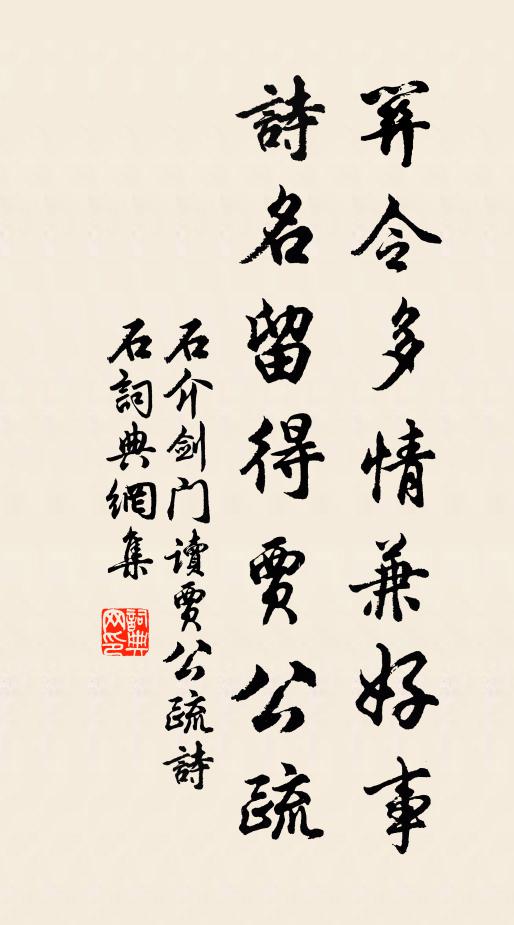 令多情兼好事
詩名留得賈公疏
石介剑门讀賈公疏詩
石詞典網集
詞典
网印